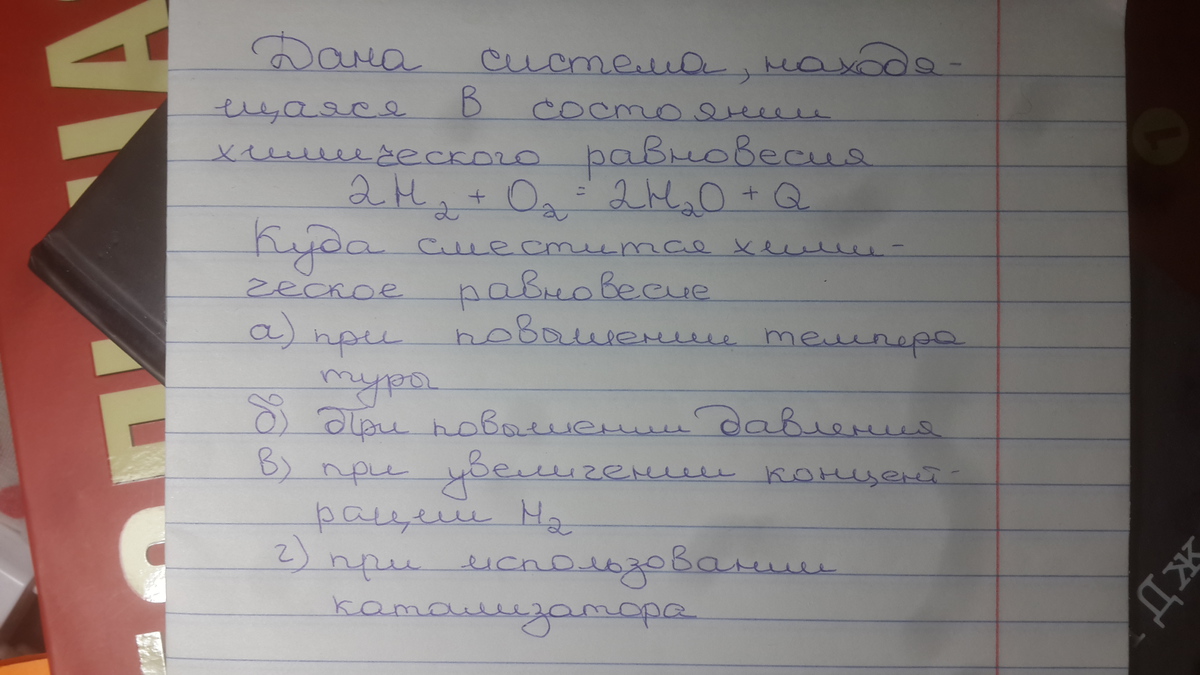 Дана система, находя-
щаяся в состоянии
химического равновесия
2H₂ + O₂ = 2H₂O + Q
Куда сместится хими-
ческое равновесие
а) при повышении темпера
туры
б) При повышении давления
в) при увеличении концент-
рации H₂
г) при использовании
катализатора